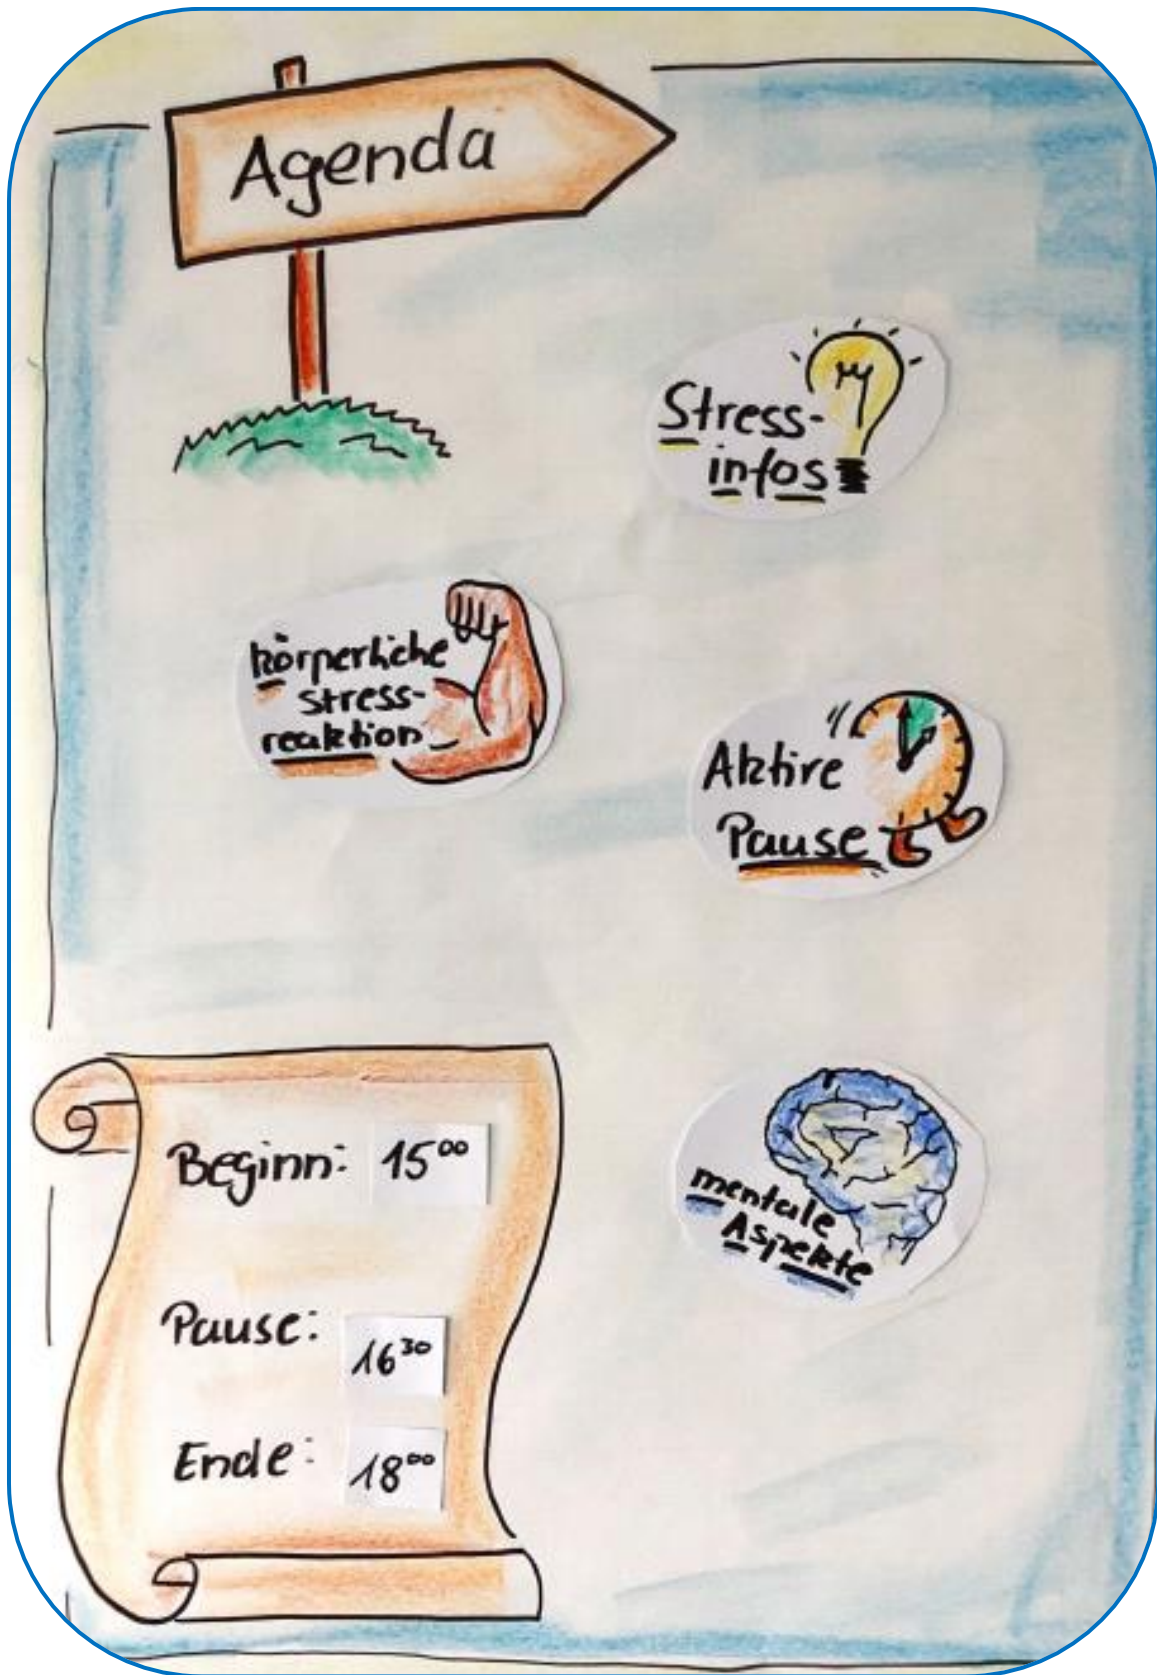 Agenda
Stress-
infos
körperliche
stress-
reaktion
Aktive
Pause
mentale
Aspekte
Beginn: 15⁰⁰
Pause:
16³⁰
Ende: 18⁰⁰